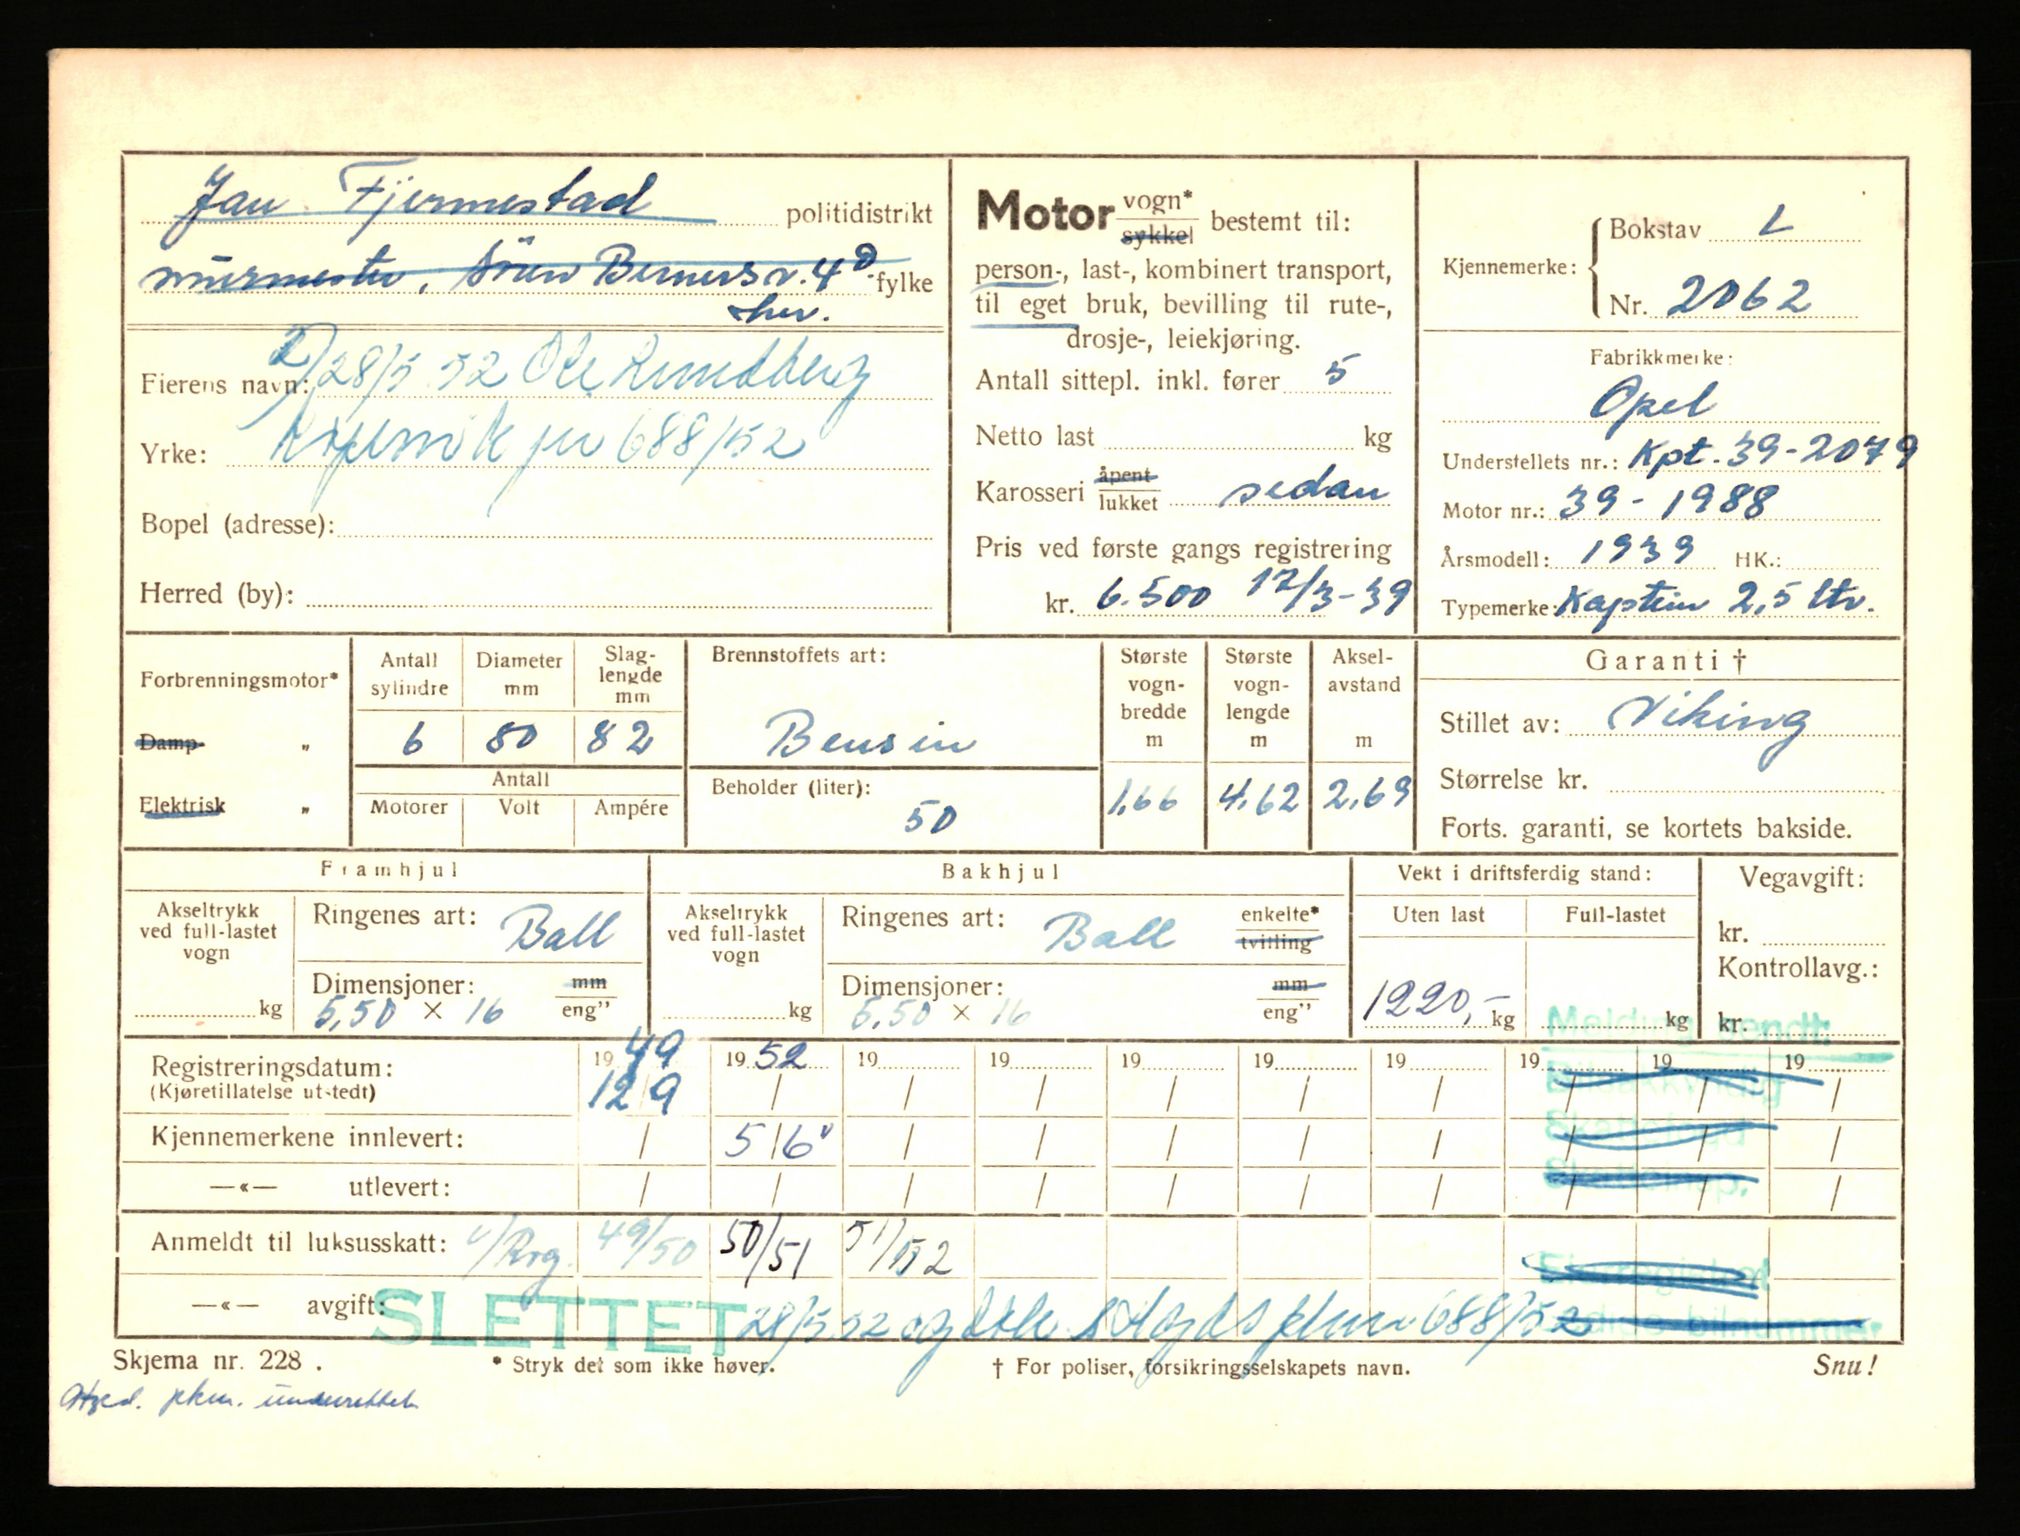 Jan Fjermestad politidistrikt
murmester, Sören Berners v. 4D fylke
her.
Eierens navn: 2) 28/5 52 Ole Lundberg
Yrke: Kopervik jnr 688/52
Bopel (adresse):
Herred (by):
Motor vogn* sykkel bestemt til:
person-, last-, kombinert transport,
til eget bruk, bevilling til rute-,
drosje-, leiekjøring.
Antall sittepl. inkl. fører 5
Netto last kg
Karosseri åpent lukket sedan
Pris ved første gangs registrering
kr. 6.500 17/3-39
Kjennemerke: Bokstav L
Nr. 2062
Fabrikkmerke:
Opel
Understellets nr.: Kpt. 39-2079
Motor nr.: 39-1988
Årsmodell: 1939 HK.:
Typemerke: Kaptein 2,5 ltr.
Forbrenningsmotor*
Damp- "
Elektrisk "
Antall sylindre Diameter mm Slag-lengde mm
6 80 82
Antall
Motorer Volt Ampére
Brennstoffets art:
Bensin
Beholder (liter):
50
Største vogn-bredde m Største vogn-lengde m Aksel-avstand m
1,66 4,62 2,69
Garanti †
Stillet av: Viking
Størrelse kr.
Forts. garanti, se kortets bakside.
Framhjul
Akseltrykk ved full-lastet vogn kg
Ringenes art: Ball
Dimensjoner: mm
5,50 × 16 eng"
Bakhjul
Akseltrykk ved full-lastet vogn kg
Ringenes art: Ball enkelte* tvilling
Dimensjoner: mm
5,50 × 16 eng"
Vekt i driftsferdig stand:
Uten last Full-lastet
1220,- kg kg
Vegavgift:
kr.
Kontrollavg.:
kr.
Melding sendt:
Registreringsdatum: 19 49 19 52 19 19 19 19 19 19 19 19
(Kjøretillatelse utstedt) 12 9 / / / / / / / / /
Kjennemerkene innlevert: / 5/6 / / / / / / / /
—«— utlevert: / / / / / / / / / /
Anmeldt til luksusskatt: 49/50 50/51 51/52
—«— avgift:
SLETTET 28/5 52 688/52
Skjema nr. 228. * Stryk det som ikke høver. † For poliser, forsikringsselskapets navn. Snu!
underrettet